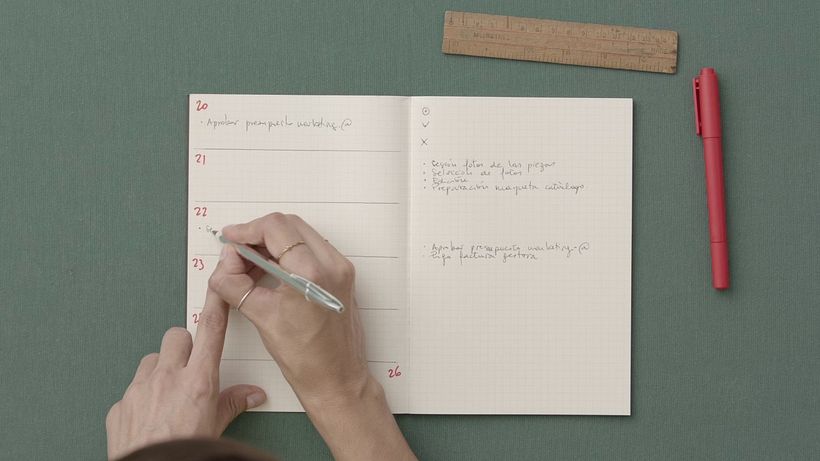 20
· Aprobar presupuesto marketing. @
21
22
· Se
23
26
· Sesión fotos de las piezas
· Selección de fotos
· Edición
· Preparación maqueta catálogo.
· Aprobar presupuesto marketing. @
· Paga factura gestora